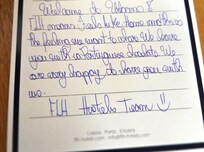 Welcome to Lisbon!!
FLH Hotels feels like home and this is
the feeling we want to share. We leave
you with a Portuguese chocolate. We
are very happy to have you with
us.
FLH Hotels Team
Lisboa . Porto . Ericeira
flh-hotels.com